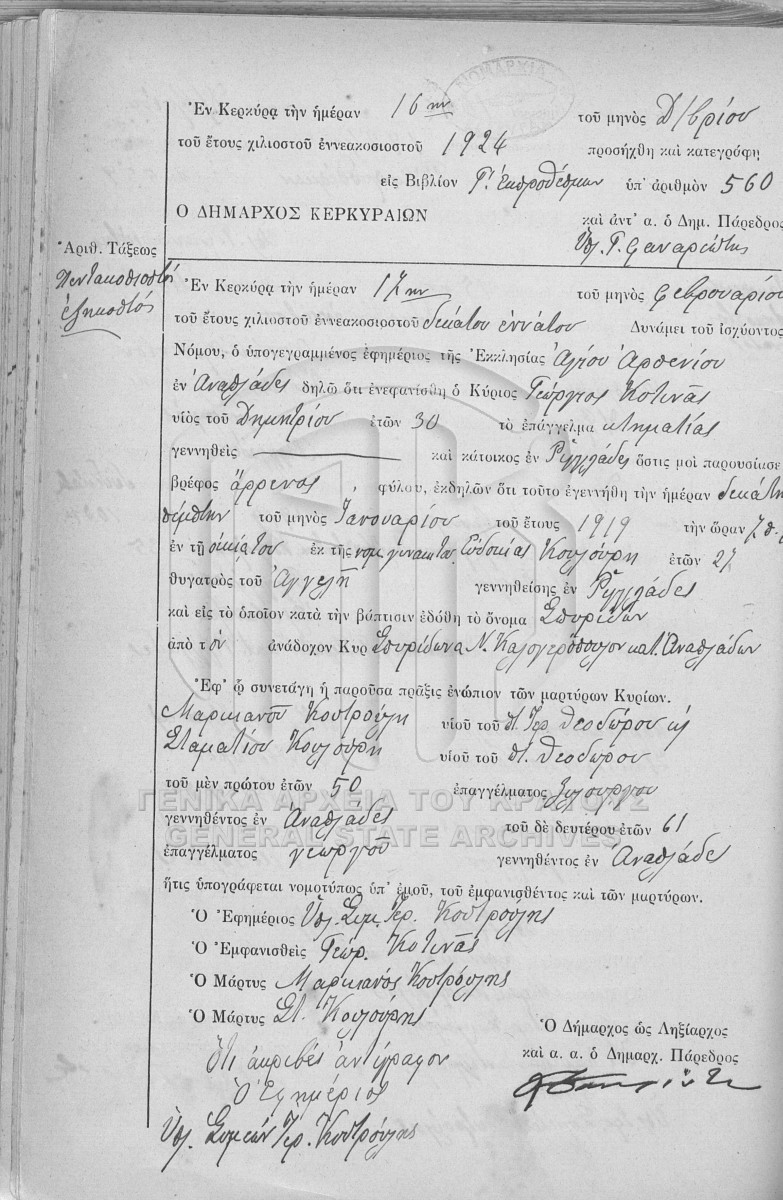 Ἐν Κερκύρᾳ τὴν ἡμέραν 16ην τοῦ μηνὸς Δ/βρίου
τοῦ ἔτους χιλιοστοῦ ἐννεακοσιοστοῦ 1924 προσήχθη καὶ κατεγράφη
εἰς Βιβλίον Γ' Ἐκπροθέσμων ὑπ' ἀριθμὸν 560
Ο ΔΗΜΑΡΧΟΣ ΚΕΡΚΥΡΑΙΩΝ καὶ ἀντ' α. ὁ Δημ. Πάρεδρος
Ὑπ. Γ. Φαναριώτης
Ἀριθ. Τάξεως
Πεντακοσιοστὸ
ἑξηκοστός
Ἐν Κερκύρᾳ τὴν ἡμέραν 17ην τοῦ μηνὸς Φεβρουαρίου
τοῦ ἔτους χιλιοστοῦ ἐννεακοσιοστοῦ δεκάτου ἐννάτου Δυνάμει τοῦ ἰσχύοντος
Νόμου, ὁ ὑπογεγραμμένος ἐφημέριος τῆς Ἐκκλησίας Ἁγίου Ἀρσενίου
ἐν Ἀναπλάδες δηλῶ ὅτι ἐνεφανίσθη ὁ Κύριος Γεώργιος Κοτινᾶς
υἱὸς τοῦ Δημητρίου ἐτῶν 30 τὸ ἐπάγγελμα κτηματίας
γεννηθεὶς καὶ κάτοικος ἐν Ριγγλάδες ὅστις μοὶ παρουσίασε
βρέφος ἄρρενος φύλου, ἐκδηλῶν ὅτι τοῦτο ἐγεννήθη τὴν ἡμέραν δεκάτη
πέμπτην τοῦ μηνὸς Ἰανουαρίου τοῦ ἔτους 1919 τὴν ὥραν 7 π.
ἐν τῇ οἰκίᾳ του ἐκ τῆς νομ. γυναικὸς του Εὐδοκίας Κουλούρη ἐτῶν 27
θυγατρὸς τοῦ Ἀγγελῆ γεννηθείσης ἐν Ριγγλάδες
καὶ εἰς τὸ ὁποῖον κατὰ τὴν βάπτισιν ἐδόθη τὸ ὄνομα Σπυρίδων
ἀπὸ τὸν ἀνάδοχον Κυρ Σπυρίδωνα Ν. Καλογερόπουλον κατ. Ἀναπλάδων
Ἐφ' ᾧ συνετάγη ἡ παροῦσα πρᾶξις ἐνώπιον τῶν μαρτύρων Κυρίων.
Μαρκιανοῦ Κουτρούλη υἱοῦ τοῦ π. Ἱερ. Θεοδώρου κ
Σταματίου Κουλούρη υἱοῦ τοῦ π. Θεοδώρου
τοῦ μὲν πρώτου ἐτῶν 50 ἐπαγγέλματος ξυλουργοῦ
γεννηθέντος ἐν Ἀναπλάδες τοῦ δὲ δευτέρου ἐτῶν 61
ΓΕΝΙΚΑ ΑΡΧΕΙΑ ΤΟΥ ΚΡΑΤΟΥΣ
GENERAL STATE ARCHIVES
ἐπαγγέλματος γεωργοῦ γεννηθέντος ἐν Ἀναπλάδες
ἥτις ὑπογράφεται νομοτύπως ὑπ' ἐμοῦ, τοῦ ἐμφανισθέντος καὶ τῶν μαρτύρων.
Ὁ Ἐφημέριος Ὑπ. Συμ. Ἱερ. Κουτρούλης
Ὁ Ἐμφανισθεὶς Γεώρ. Κοτινᾶς
Ὁ Μάρτυς Μαρκιανός Κουτρούλης
Ὁ Μάρτυς Στ. Κουλούρης
Ὅτι ἀκριβὲς ἀντίγραφον
Ὁ Ἐφημέριος
Ὑπ. Συμεών Ἱερ. Κουτρούλης
Ὁ Δήμαρχος ὡς Ληξίαρχος
καὶ α. α. ὁ Δημαρχ. Πάρεδρος